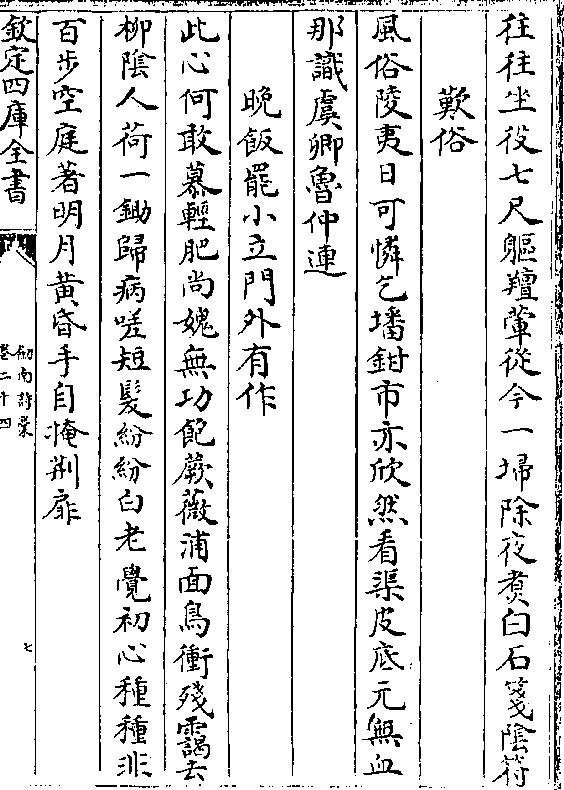 往往坐役七尺軀羶葷從今一埽除夜煑白石箋陰符
歎俗
風俗陵夷日可憐乞墦鉗市亦欣然看渠皮底元無血
那識虞卿魯仲連
晚飯罷小立門外有作
此心何敢慕輕肥尚媿無功飽蕨薇浦面鳥衝殘靄去
柳陰人荷一鋤歸病嗟短髮紛紛白老覺初心種種非
百步空庭著明月黃昏手自掩荆扉
欽定四庫全書
劒南詩藁
卷二十四
七